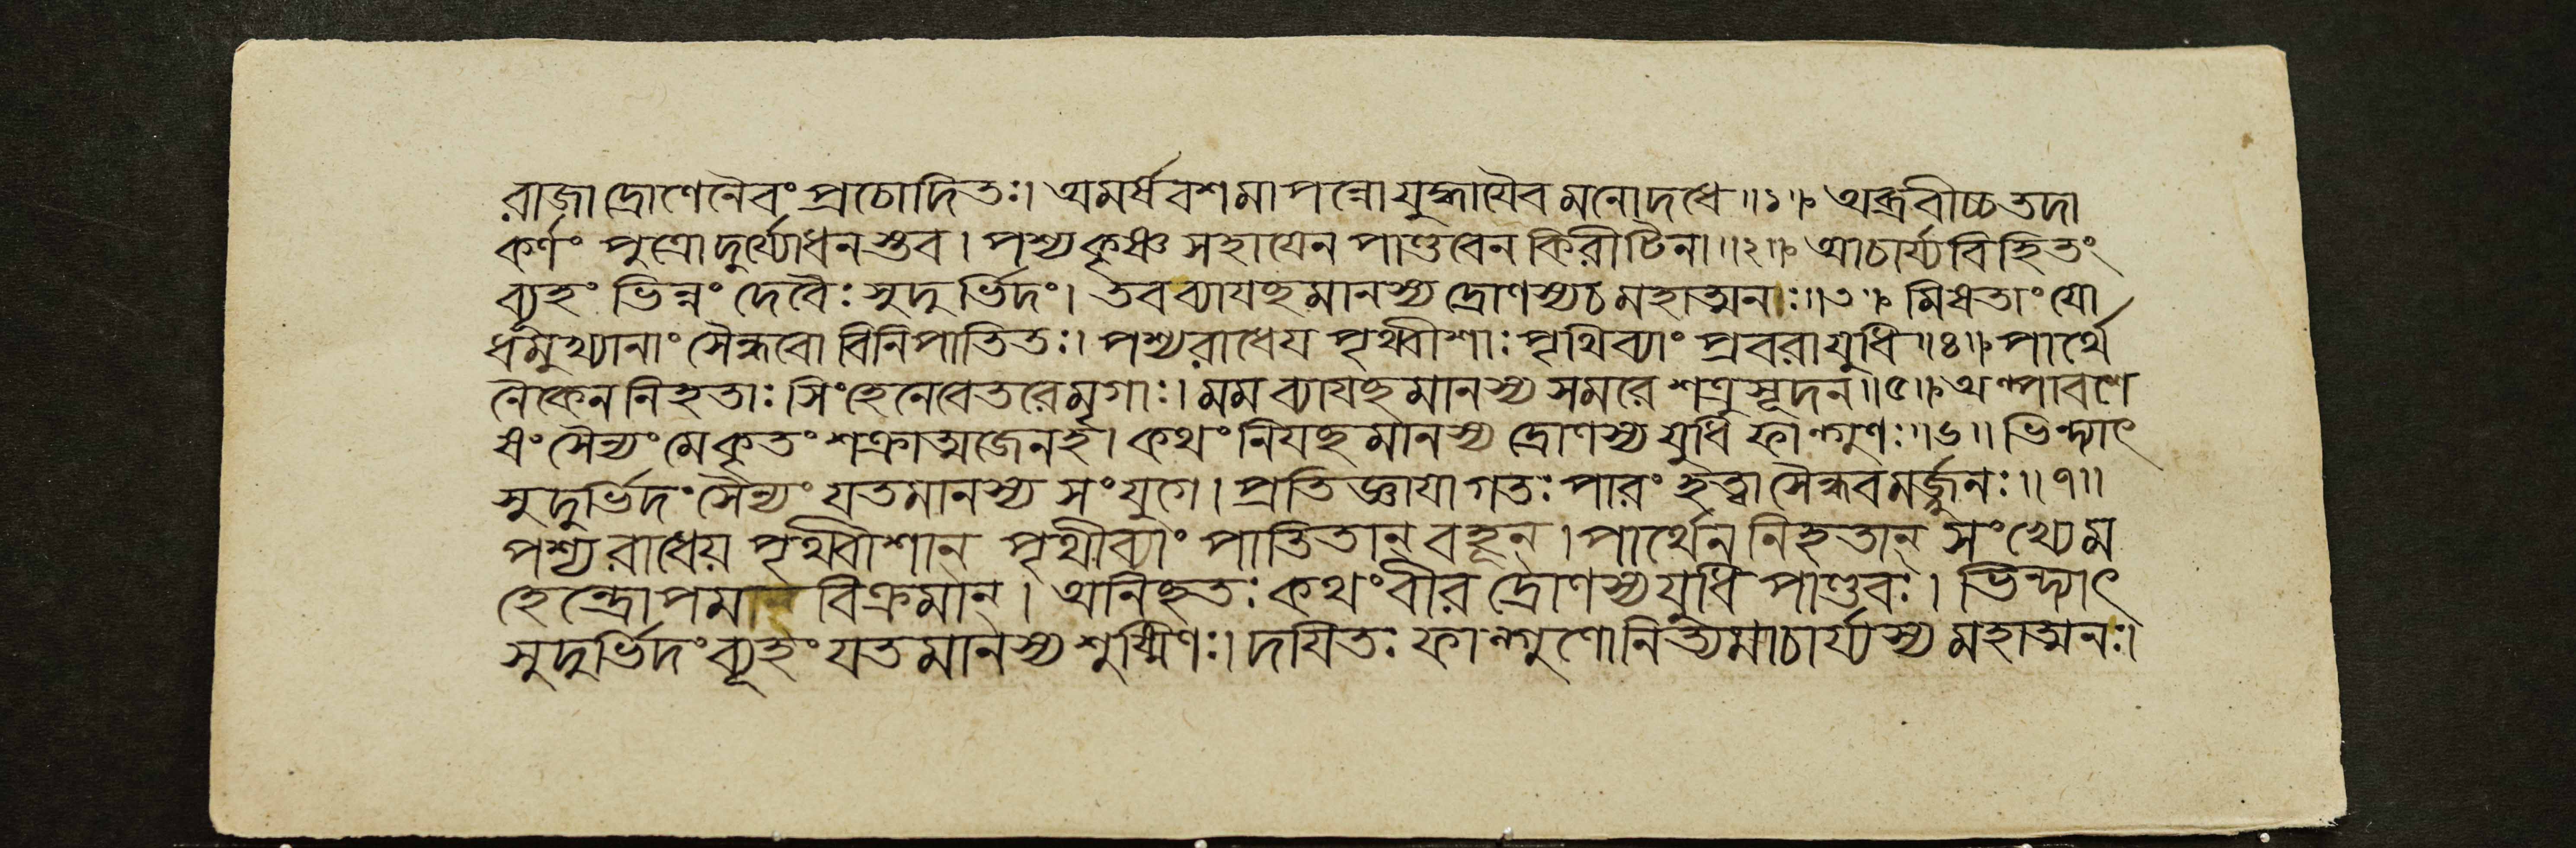 রাজা দ্রোণেনৈবং প্রচোদিতঃ। অমর্ষবশমাপন্নো যুদ্ধায়ৈব মনোদধে॥১॥ অব্রবীচ্চতদা
কর্ণং পুত্রোদুর্য্যোধনস্তব। পশ্যকৃষ্ণসহায়েন পাণ্ডবেন কিরীটিনা॥২॥ আচার্য্যবিহিতং
ব্যহং ভিন্নং দেবৈঃ সুদুর্ভিদং। তবব্যাযচ্ছমানস্য দ্রোণস্যচ মহাত্মনঃ॥৩॥ মিষতাং যো
ধমুখ্যানাং সৈন্ধবো বিনিপাতিতঃ। পশ্যরাধেয পৃথ্বীশাঃ পৃথিব্যাং প্রবরাযুধি॥৪॥ পার্থে
নৈকেন নিহতাঃ সিংহেনেবেতরেমৃগাঃ। মম ব্যাযচ্ছমানস্য সমরে শত্রুসূদন॥৫॥ অল্পাবশে
ষং সৈন্যং মেকৃতং শক্রাত্মজেনহ। কথং নিযচ্ছমানস্য দ্রোণস্য যুধি ফাল্গুণঃ॥৬॥ ভিন্দ্যাৎ
সুদুর্ভিদং সৈন্যং যতমানস্য সংযুগে। প্রতিজ্ঞাযা গতঃ পারং হত্বা সৈন্ধবমর্জ্জুনঃ॥৭॥
পশ্যরাধেয় পৃথ্বীশান পৃথীব্যাং পাতিতান্ বহূন্। পার্থেন নিহতান্ সংখ্যে ম
হেন্দ্রোপমান বিক্রমান্। অনিচ্ছতঃ কথংবীর দ্রোণস্যযুধি পাণ্ডবঃ। ভিন্দ্যাৎ
সুদুর্ভিদং ব্যূহং যতমানস্য শুষ্মিণঃ। দযিতঃ ফাল্গুণোনিত্যমাচার্য্যস্য মহাত্মনঃ।